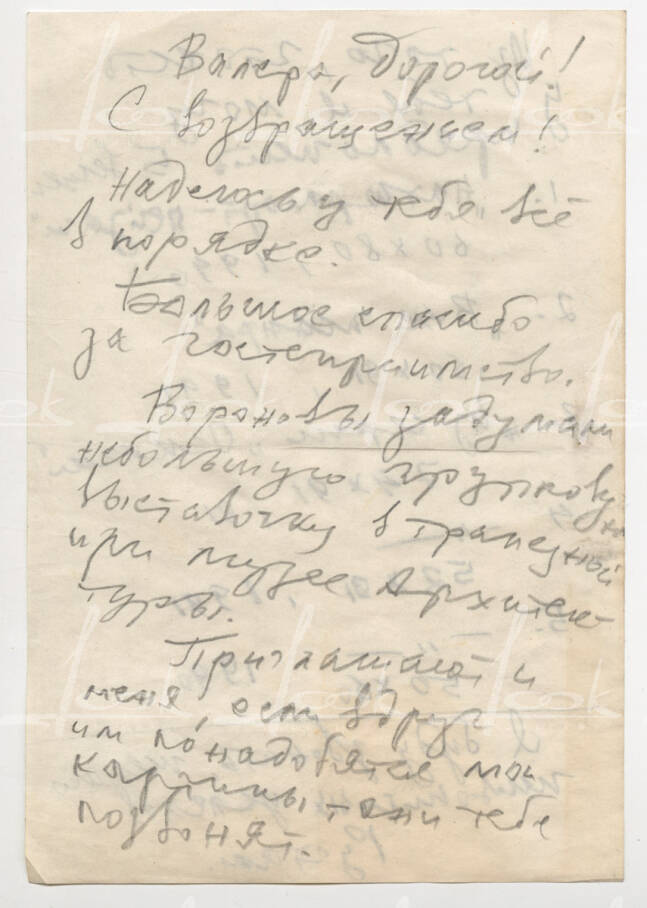 Валера, дорогой!
С возвращением!
Надеюсь у тебя всё
в порядке.
Большое спасибо
за гостеприимство.
Вороновы задумали
небольшую групповую
выставочку в трапезной
при музее Архитек-
туры.
Приглашают и
меня, если вдруг
им понадобятся мои
картины, они тебе
позвонят.